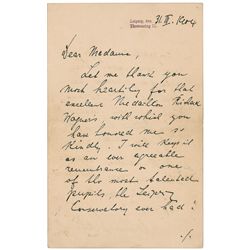 Leipzig, den
Thomasring
Dear Madame,
Let me thank you
most heartily for that
excellent Medallion Richard
Wagner's with which you
have honoured me so
kindly. I will keep it
as an ever agreable
remembrance on one
of the most talented
pupils, the Leipzig
Conservatory ever had!
./.